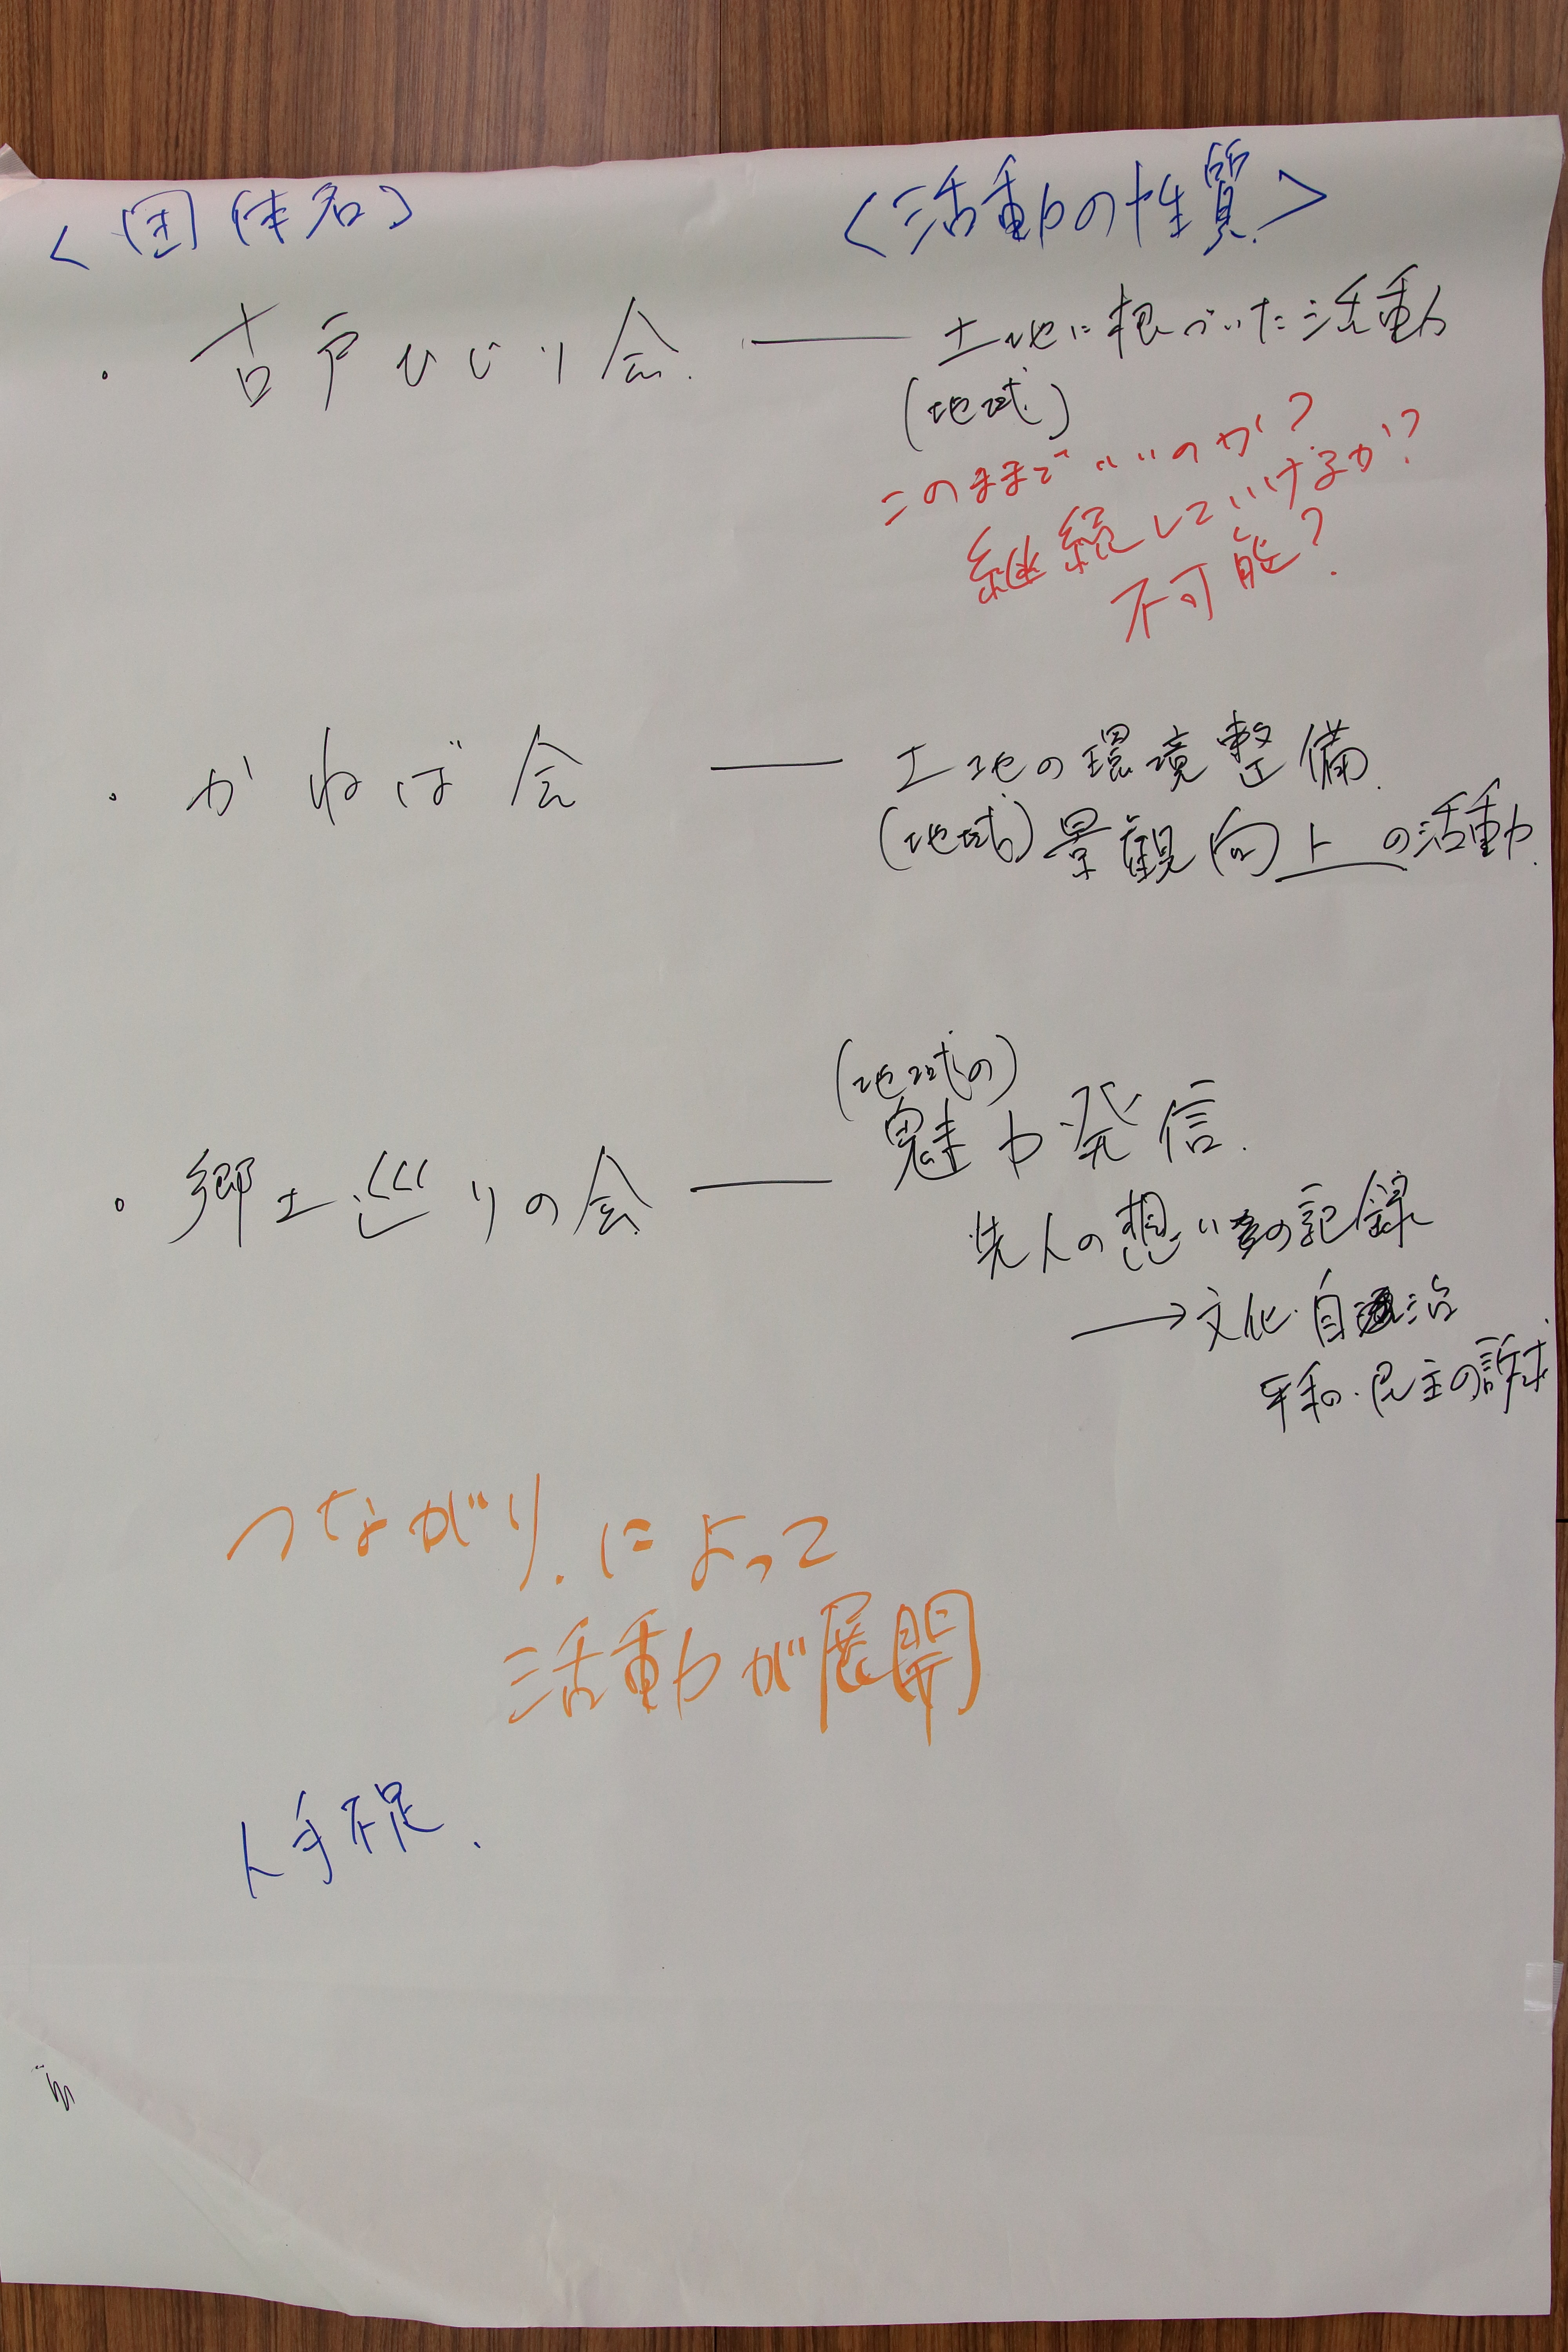 <団体名>
<活動の性質>
・古戸ひじり会 ― 土地に根づいた活動
(地域)
このままでいいのか?
継続していけるか?
不可能?
・かねば会 ― 土地の環境整備
(地域)景観向上の活動
(地域の)
・郷土巡りの会 ― 魅力発信
先人の想いの記録
→文化・自治
平和・民主の訴求
つながりによって
活動が展開
人手不足